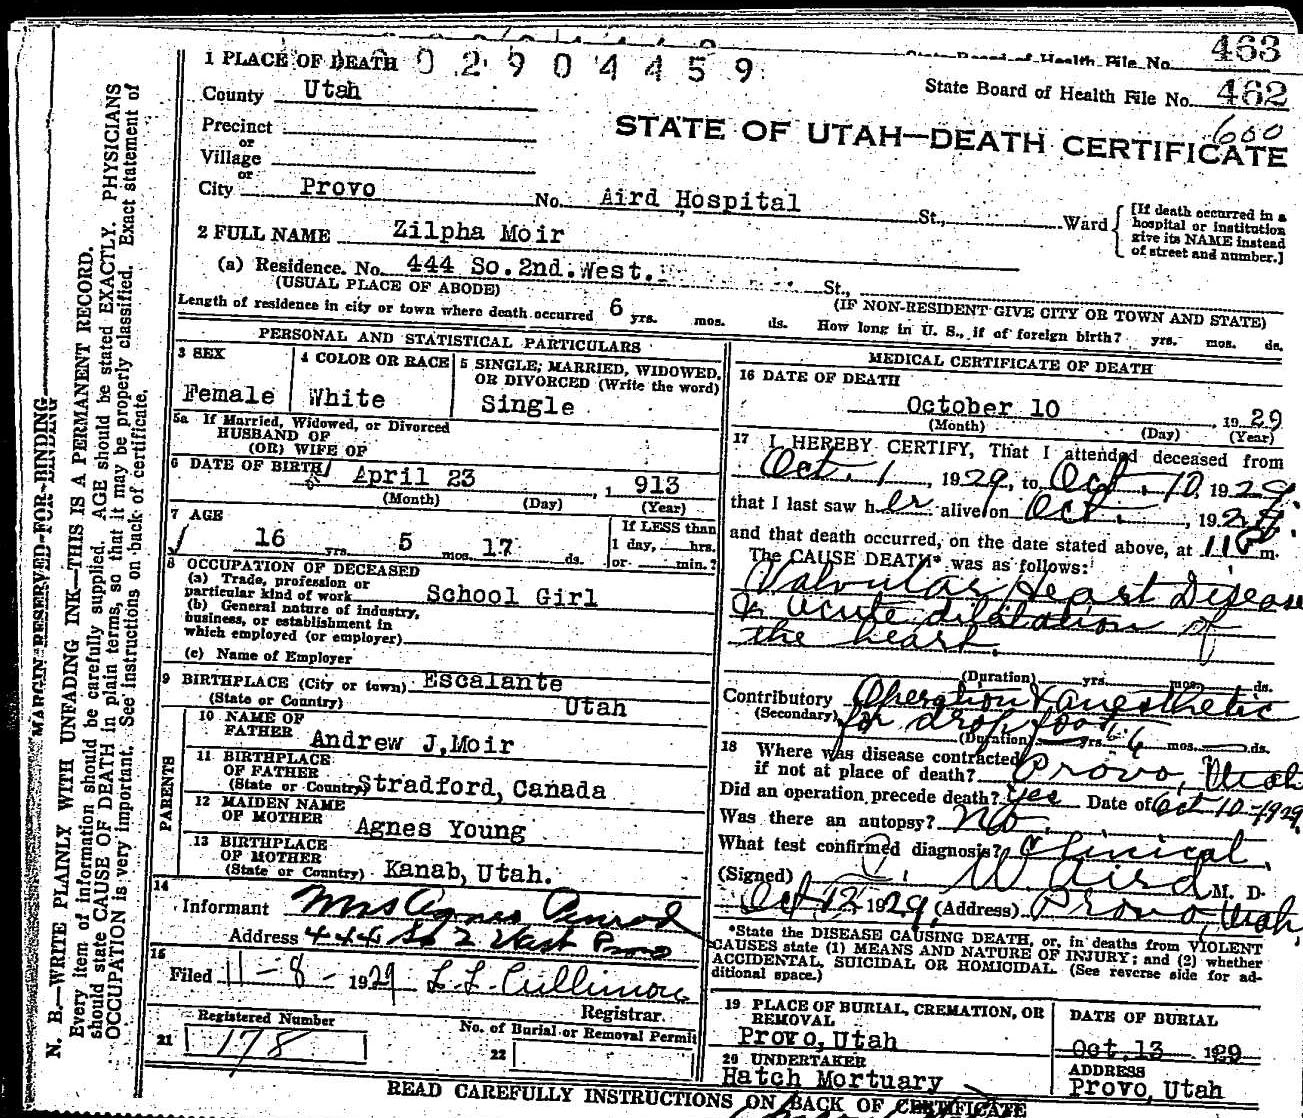 State Board of Health File No. 463
1 PLACE OF DEATH 0 2 9 0 4 4 5 9
State Board of Health File No. 462
County Utah
600
Precinct
STATE OF UTAH—DEATH CERTIFICATE
or
Village
or
City Provo No. Aird Hospital St., Ward
[If death occurred in a
hospital or institution
give its NAME instead
of street and number.]
2 FULL NAME Zilpha Moir
(a) Residence. No. 444 So. 2nd. West. St.,
(USUAL PLACE OF ABODE) (IF NON-RESIDENT GIVE CITY OR TOWN AND STATE)
Length of residence in city or town where death occurred 6 yrs. mos. ds. How long in U. S., if of foreign birth? yrs. mos. ds.
PERSONAL AND STATISTICAL PARTICULARS
3 SEX
Female
4 COLOR OR RACE
White
5 SINGLE, MARRIED, WIDOWED,
OR DIVORCED (Write the word)
Single
5a If Married, Widowed, or Divorced
HUSBAND OF
(OR) WIFE OF
6 DATE OF BIRTH April 23, 1 913
(Month) (Day) (Year)
7 AGE
16 yrs. 5 mos. 17 ds.
If LESS than
1 day, hrs.
or min.?
8 OCCUPATION OF DECEASED
(a) Trade, profession or
particular kind of work School Girl
(b) General nature of industry,
business, or establishment in
which employed (or employer)
(c) Name of Employer
9 BIRTHPLACE (City or town) Escalante
(State or Country) Utah
PARENTS
10 NAME OF
FATHER Andrew J, Moir
11 BIRTHPLACE
OF FATHER
(State or Country) Stradford, Canada
12 MAIDEN NAME
OF MOTHER Agnes Young
13 BIRTHPLACE
OF MOTHER
(State or Country) Kanab, Utah.
14
Informant Mrs Agnes Penrod
Address 444 So 2 West Provo
15
Filed 11-8-1929 L. L. Cullimore
Registrar.
Registered Number
21 178
No. of Burial or Removal Permit
22
MEDICAL CERTIFICATE OF DEATH
16 DATE OF DEATH
October 10, 19 29
(Month) (Day) (Year)
17 I HEREBY CERTIFY, That I attended deceased from
Oct. 1, 1929, to Oct. 10, 1929
that I last saw her alive on Oct.
and that death occurred, on the date stated above, at m.
The CAUSE DEATH* was as follows:
Valvular Heart Disease
or acute dilatation of
the heart.
(Duration) yrs. mos. ds.
Contributory Operation & anesthetic
(Secondary) for drop foot
(Duration) yrs. 6 mos. ds.
18 Where was disease contracted
if not at place of death? Provo, Utah
Did an operation precede death? yes Date of Oct 10-1929
Was there an autopsy? No
What test confirmed diagnosis? Clinical.
(Signed) W Aird M. D.
Oct 12 1929, (Address) Provo, Utah
*State the DISEASE CAUSING DEATH, or, in deaths from VIOLENT
CAUSES state (1) MEANS AND NATURE OF INJURY; and (2) whether
ACCIDENTAL, SUICIDAL OR HOMICIDAL. (See reverse side for ad-
ditional space.)
19 PLACE OF BURIAL, CREMATION, OR
REMOVAL
Provo, Utah
DATE OF BURIAL
Oct. 13 1929
20 UNDERTAKER
Hatch Mortuary
ADDRESS
Provo, Utah
READ CAREFULLY INSTRUCTIONS ON BACK OF CERTIFICATE
MARGIN RESERVED FOR BINDING
N. B.—WRITE PLAINLY WITH UNFADING INK—THIS IS A PERMANENT RECORD.
Every item of information should be carefully supplied. AGE should be stated EXACTLY. PHYSICIANS
should state CAUSE OF DEATH in plain terms, so that it may be properly classified. Exact statement of
OCCUPATION is very important. See instructions on back of certificate.